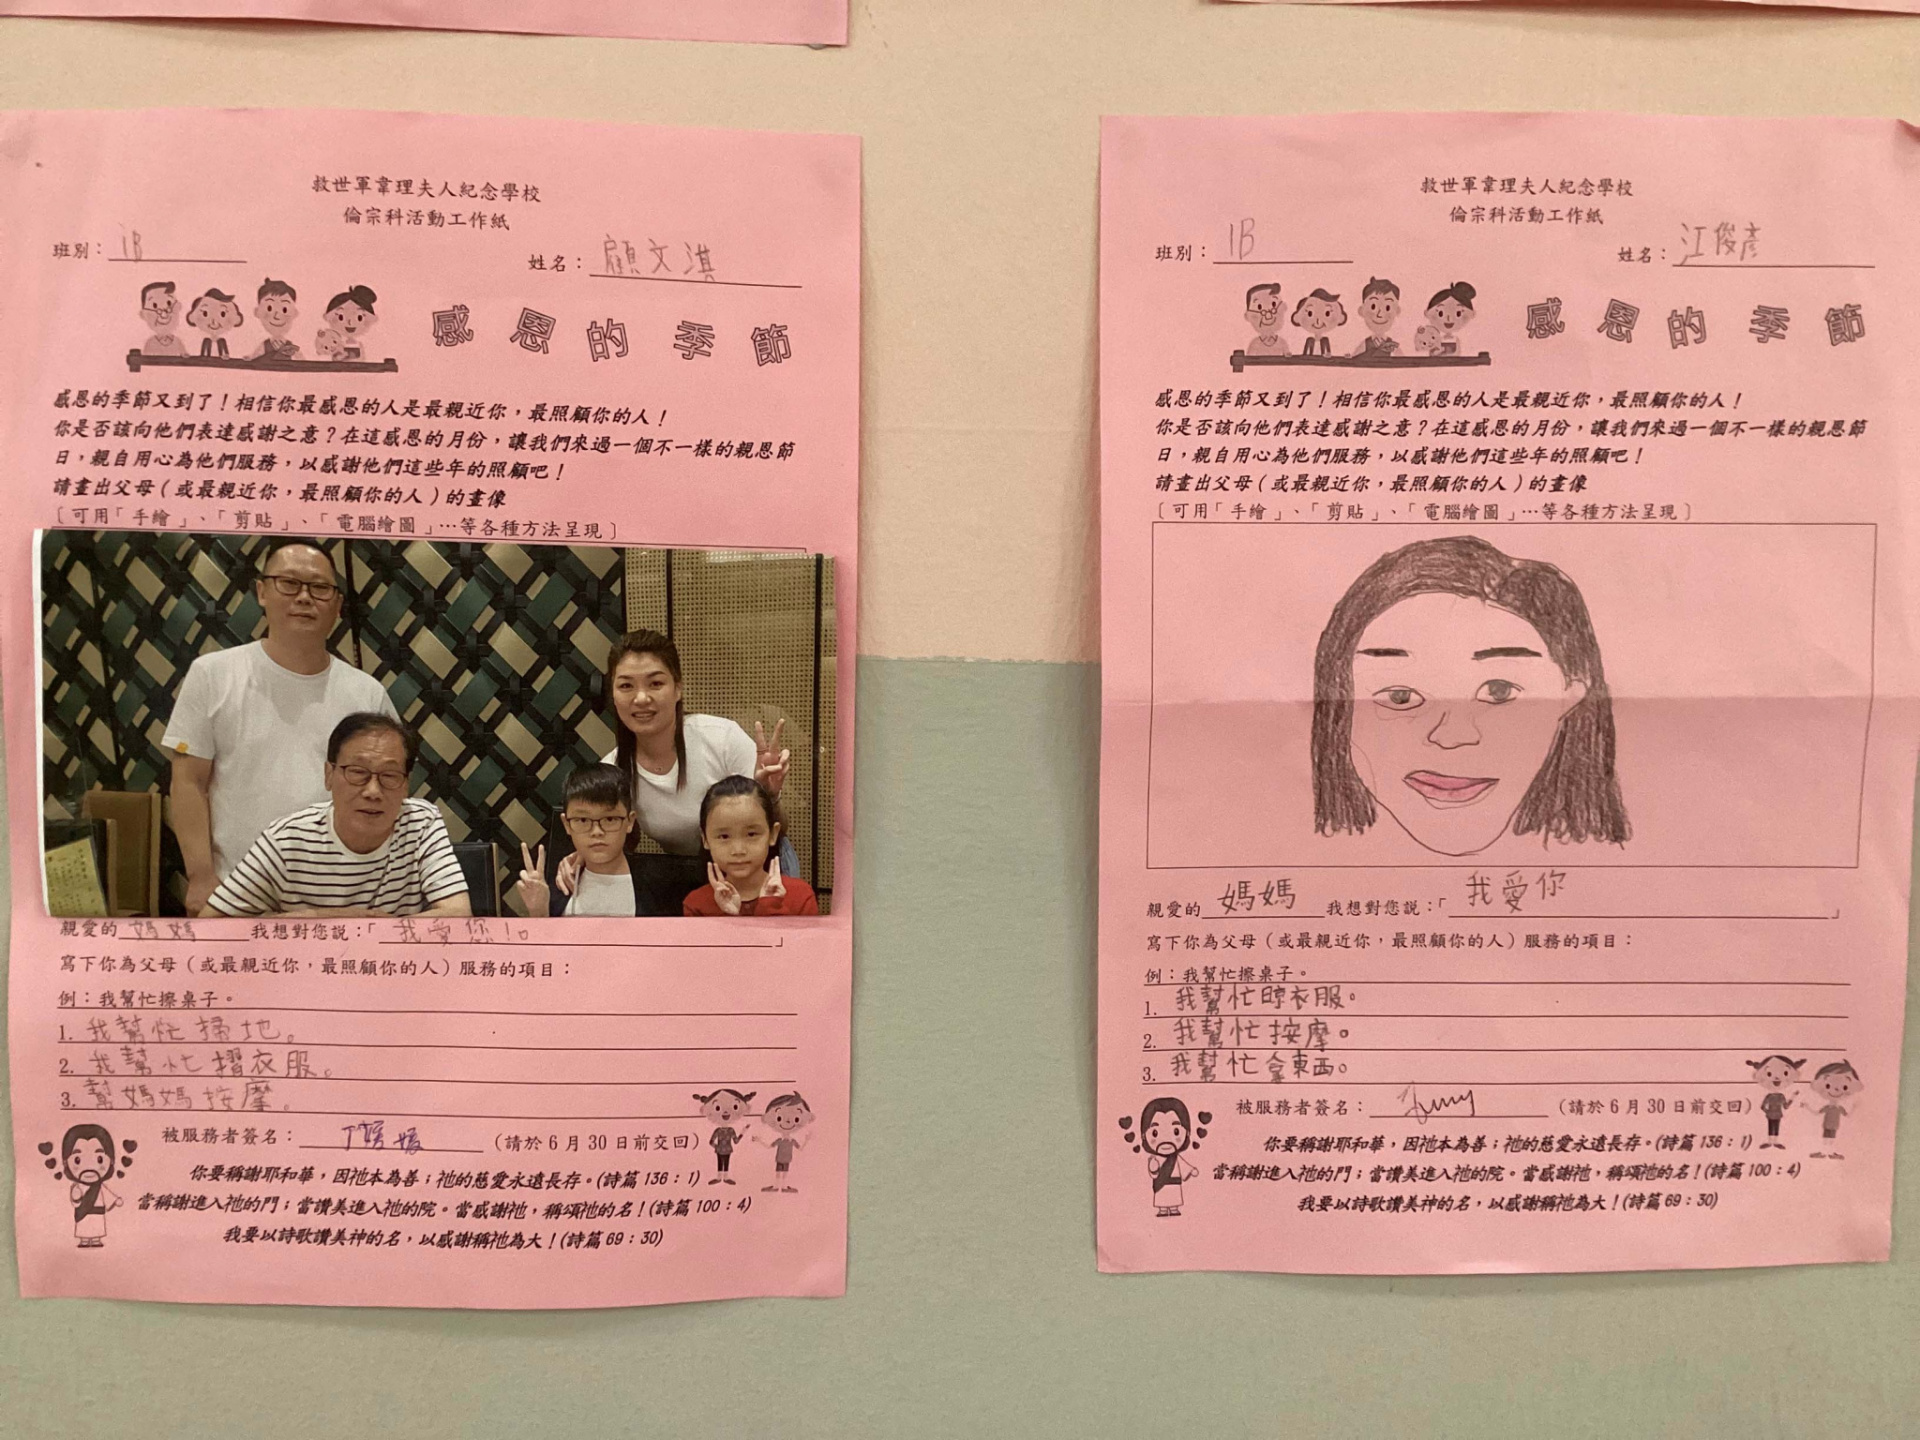 救世軍韋理夫人紀念學校
倫宗科活動工作紙
班別：1B 姓名：顧文淇
感恩的季節
感恩的季節又到了！相信你最感恩的人是最親近你，最照顧你的人！
你是否該向他們表達感謝之意？在這感恩的月份，讓我們來過一個不一樣的親恩節
日，親自用心為他們服務，以感謝他們這些年的照顧吧！
請畫出父母（或最親近你，最照顧你的人）的畫像
〔可用「手繪」、「剪貼」、「電腦繪圖」…等各種方法呈現〕
親愛的媽媽我想對您說：「我愛您!。」
寫下你為父母（或最親近你，最照顧你的人）服務的項目：
例：我幫忙擦桌子。
1. 我幫忙掃地。
2. 我幫忙摺衣服。
3. 幫媽媽按摩。
被服務者簽名： （請於6月30日前交回）
你要稱謝耶和華，因祂本為善；祂的慈愛永遠長存。(詩篇136：1)
當稱謝進入祂的門；當讚美進入祂的院。當感謝祂，稱頌祂的名！(詩篇100：4)
我要以詩歌讚美神的名，以感謝稱祂為大！(詩篇69：30)
救世軍韋理夫人紀念學校
倫宗科活動工作紙
班別：1B 姓名：江俊彥
感恩的季節
感恩的季節又到了！相信你最感恩的人是最親近你，最照顧你的人！
你是否該向他們表達感謝之意？在這感恩的月份，讓我們來過一個不一樣的親恩節
日，親自用心為他們服務，以感謝他們這些年的照顧吧！
請畫出父母（或最親近你，最照顧你的人）的畫像
〔可用「手繪」、「剪貼」、「電腦繪圖」…等各種方法呈現〕
親愛的媽媽我想對您說：「我愛你」
寫下你為父母（或最親近你，最照顧你的人）服務的項目：
例：我幫忙擦桌子。
1. 我幫忙晾衣服。
2. 我幫忙按摩。
3. 我幫忙拿東西。
被服務者簽名： （請於6月30日前交回）
你要稱謝耶和華，因祂本為善；祂的慈愛永遠長存。(詩篇136：1)
當稱謝進入祂的門；當讚美進入祂的院。當感謝祂，稱頌祂的名！(詩篇100：4)
我要以詩歌讚美神的名，以感謝稱祂為大！(詩篇69：30)